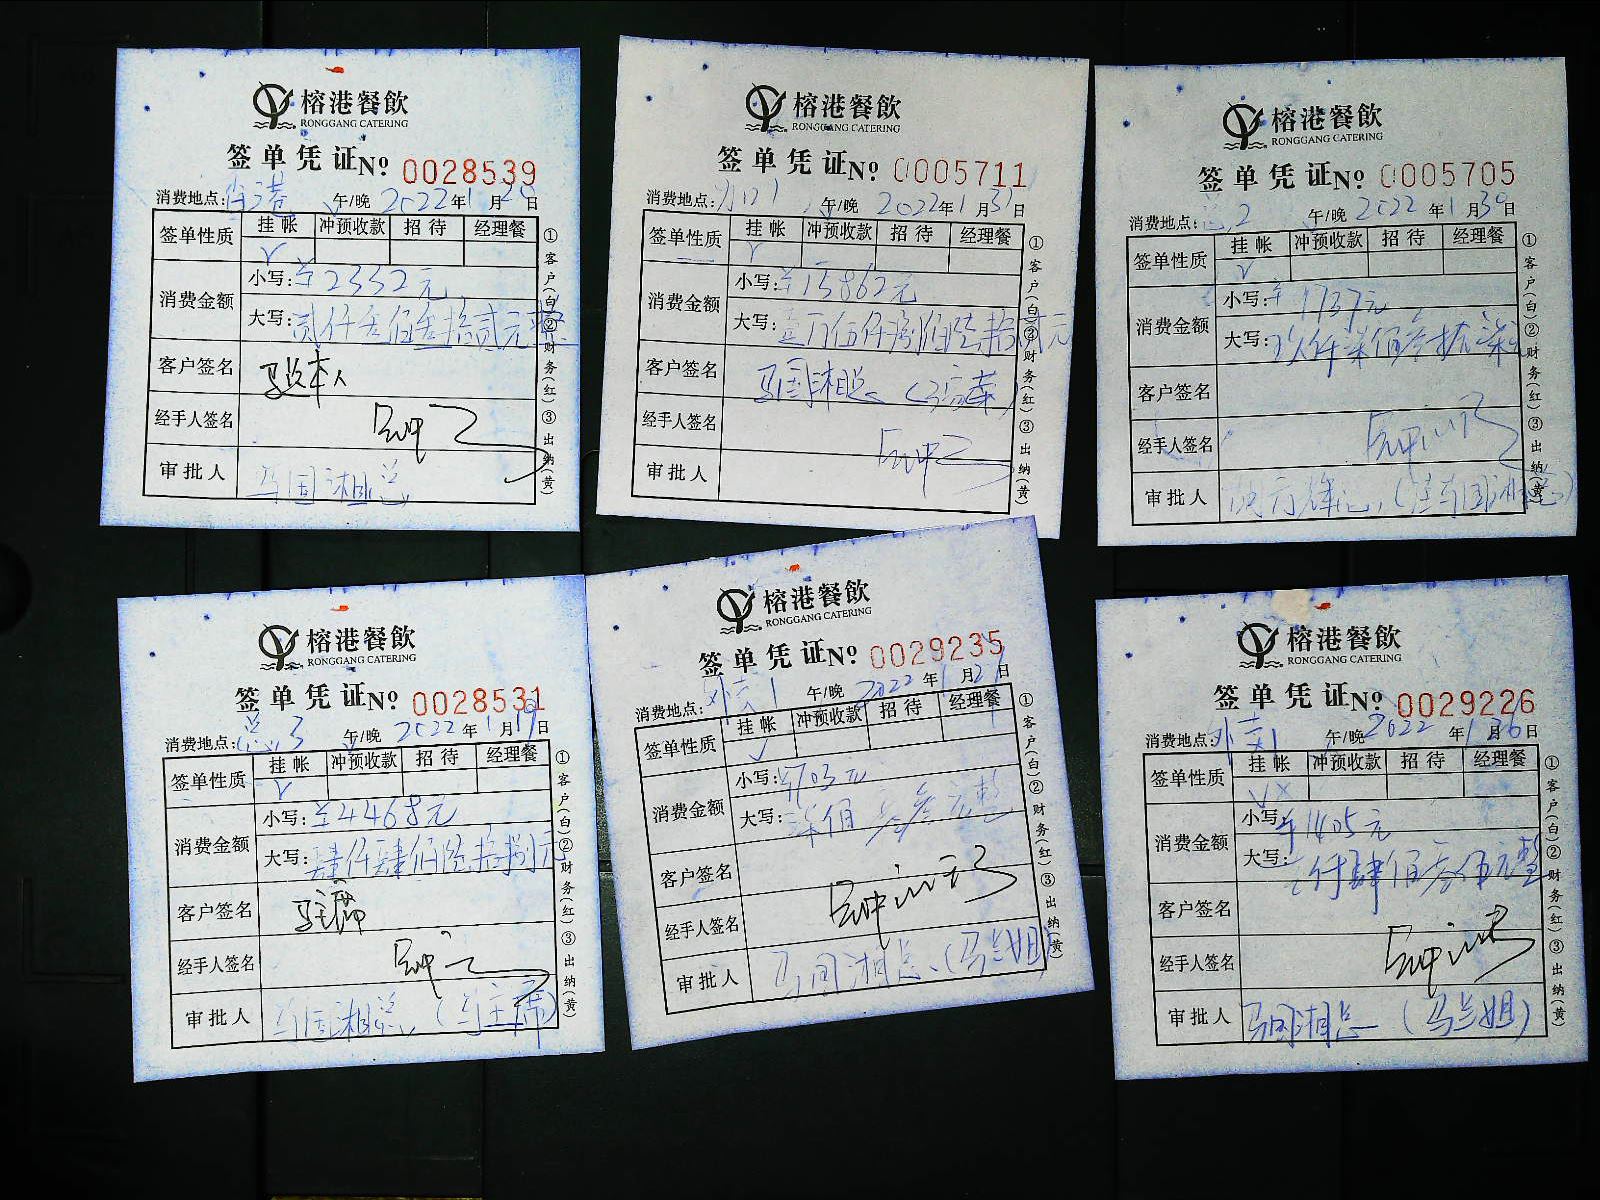 榕港餐飲
RONGGANG CATERING
签单凭证№ 0028539
消费地点: 午/晚 2022年1月2日
签单性质 挂帐 冲预收款 招待 经理餐
√
消费金额 小写:¥2332元
大写:贰仟叁佰叁拾贰元整
客户签名 本人
经手人签名
审批人 马国湘总
①客户(白)②财务(红)③出纳(黄)
榕港餐飲
RONGGANG CATERING
签单凭证№ 0005711
消费地点: 午/晚 2022年1月31日
签单性质 挂帐 冲预收款 招待 经理餐
√
消费金额 小写:¥15862元
大写:壹万伍仟捌佰陆拾贰元
客户签名 马国湘总
经手人签名
审批人
①客户(白)②财务(红)③出纳(黄)
榕港餐飲
RONGGANG CATERING
签单凭证№ 0005705
消费地点: 2 午/晚 2022年1月30日
签单性质 挂帐 冲预收款 招待 经理餐
√
消费金额 小写:¥1737元
大写: 仟柒佰叁拾柒元
客户签名
经手人签名
审批人
①客户(白)②财务(红)③出纳(黄)
榕港餐飲
RONGGANG CATERING
签单凭证№ 0028531
消费地点: 3 午/晚 2022年1月19日
签单性质 挂帐 冲预收款 招待 经理餐
√
消费金额 小写:¥4468元
大写:肆仟肆佰陆拾捌元
客户签名 马主席
经手人签名
审批人 马国湘总(马主席)
①客户(白)②财务(红)③出纳(黄)
榕港餐飲
RONGGANG CATERING
签单凭证№ 0029235
消费地点: 1 午/晚 2022年1月2日
签单性质 挂帐 冲预收款 招待 经理餐
√
消费金额 小写:¥703元
大写:柒佰 叁元整
客户签名
经手人签名
审批人 马国湘总(马兰姐)
①客户(白)②财务(红)③出纳(黄)
榕港餐飲
RONGGANG CATERING
签单凭证№ 0029226
消费地点: 1 午/晚 2022年1月26日
签单性质 挂帐 冲预收款 招待 经理餐
√×
消费金额 小写:¥1405元
大写: 仟肆佰零伍元整
客户签名
经手人签名
审批人 马国湘总(马兰姐)
①客户(白)②财务(红)③出纳(黄)